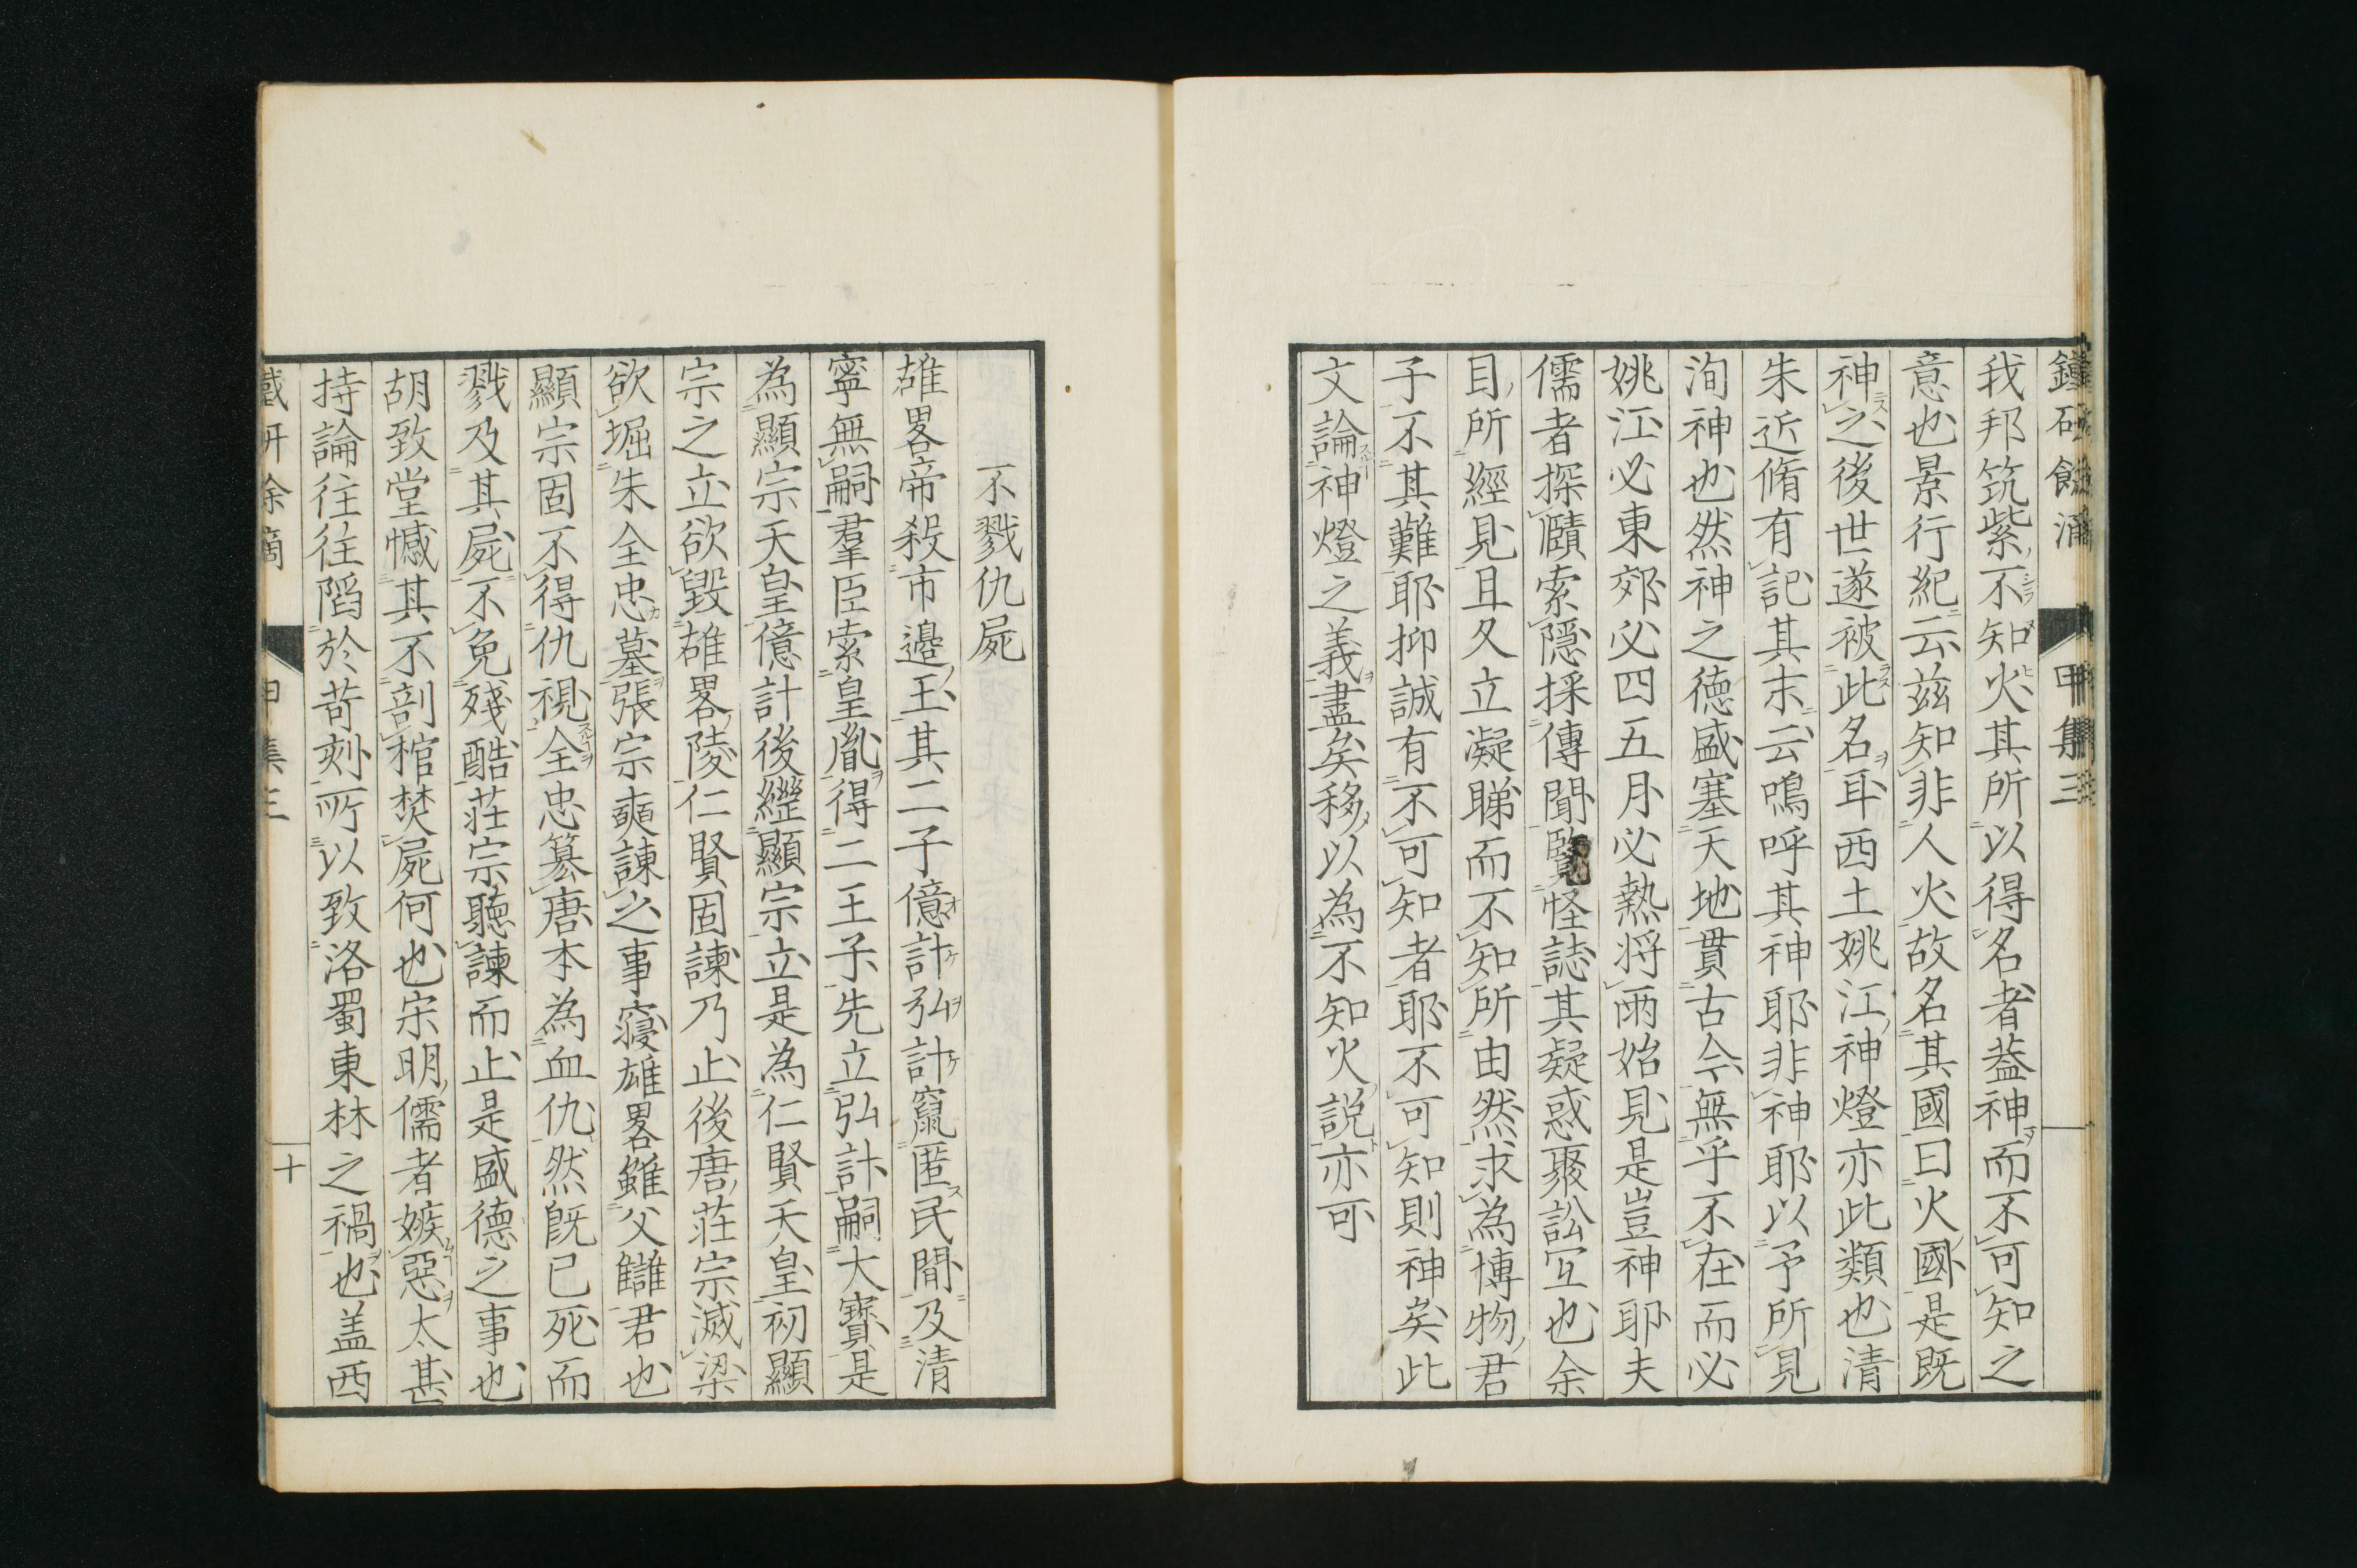 我邦筑紫不知火其所以得名者蓋神而不可知之
意也景行紀云玆知非人火故名其國曰火國是既
神之後世遂被此名耳西土姚江神燈亦此類也清
朱近脩有記其末云嗚呼其神耶非神耶以予所見
洵神也然神之德盛塞天地貫古今無乎不在而必
姚江必東郊必四五月必熱将雨始見是豈神耶夫
儒者探賾索隱採傳聞覽怪誌其疑惑聚訟冝也余
目所經見且久立凝睇而不知所由然求為博物君
子不其難耶抑誠有不可知者耶不可知則神矣此
文論神燈之義盡矣移以為不知火説亦可
不戮仇屍
雄畧帝殺市邉王其二子億計弘計竄匿民間及清
寧無嗣羣臣索皇胤得二王子先立弘計嗣大寳是
為顯宗天皇億計後繼顯宗立是為仁賢天皇初顯
宗之立欲毀雄畧陵仁賢固諫乃止後唐莊宗滅梁
欲堀朱全忠墓張宗奭諫之事寢雄畧雖父讎君也
顯宗固不得仇視全忠簒唐本為血仇然既已死而
戮及其屍不免殘酷莊宗聽諫而止是盛德之事也
胡致堂憾其不剖棺焚屍何也宋明儒者嫉惡太甚
持論往往䧟於苛刻所以致洛蜀東林之禍也盖西
甲集三
十